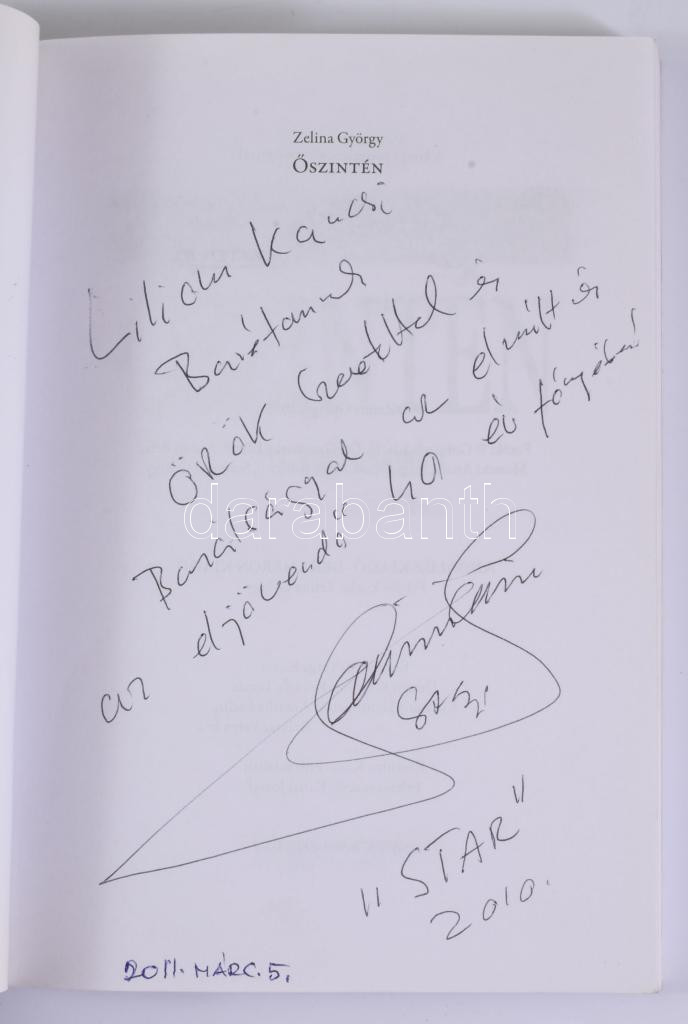 Zelina György
ŐSZINTÉN
Liliom Karcsi
Barátomnak
ÖRÖK Szeretettel és
Barátsággal az elmúlt és
az eljövendő 40 év fényében!
darabanth
"STAR"
2010.
2011. MÁRC. 5.